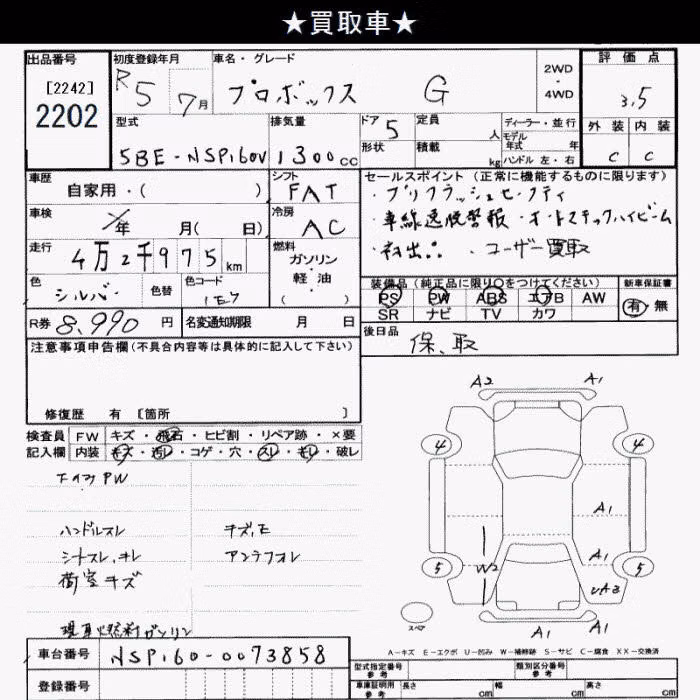 ★買取車★
出品番号
[2242]
2202
初度登録年月
R5 7月
車名・グレード
プロボックス G
2WD
・
4WD
評価点
3.5
外装 内装
C C
型式
5BE-NSP160V
排気量
1300cc
ドア 5
形状
定員 人
積載 kg
ディーラー・並行
モデル
年式 年
ハンドル 左・右
車歴
自家用・( )
シフト
FAT
車検
年 月( 日)
冷房
AC
走行
4万2千975km
燃料
ガソリン
・
軽油
( )
色
シルバー
色替
色コード
1E7
セールスポイント(正常に機能するものに限ります)
・プリクラッシュセーフティ
・車線逸脱警報・オートマチックハイビーム
・初出品 ・ユーザー買取
装備品(純正品に限り○をつけてください)
PS PW ABS エアB AW
SR ナビ TV カワ
新車保証書
有・無
R券 8,990円
名変通知期限 月 日
後日品
保、取
注意事項申告欄(不具合内容等は具体的に記入して下さい)
修復歴 有 [箇所 ]
検査員 FW キズ・飛石・ヒビ割・リペア跡・×要
記入欄 内装 キズ・汚レ・コゲ・穴・スレ・キレ・破レ
PW
ハンドルスレ キズ、モ
シートスレ、キレ アンテナオレ
荷室キズ
現車燃料ガソリン
A2 A1
4 4
A1
A1
5 W2 5
UA3
A1 A1
スペア
A-キズ E-エクボ U-凹み W-補修跡 S-サビ C-腐食 XX-交換済
車台番号 NSP160-0073858
登録番号
型式指定番号
参考
類別区分番号
参考
車庫証明用
参考
長さ cm 幅 cm 高さ cm